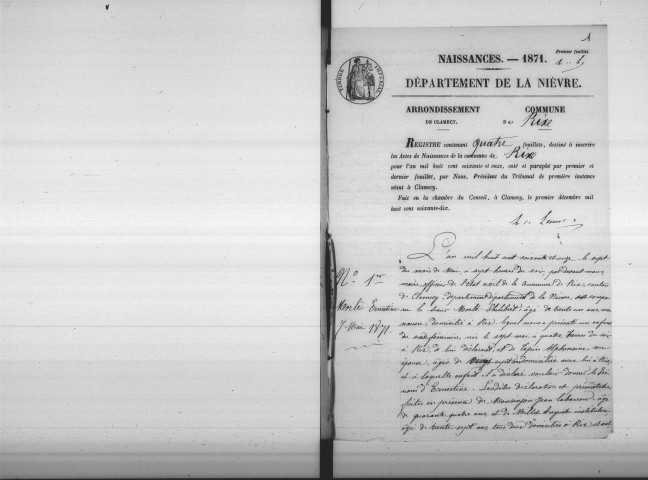 1
Premier feuillet.
NAISSANCES. — 1871.
TIMBRE IMPERIAL
DÉPARTEMENT DE LA NIÈVRE.
ARRONDISSEMENT
DE CLAMECY.
COMMUNE
D e Rixe
REGISTRE contenant quatre feuillets, destiné à inscrire
les Actes de Naissances de la commune de Rixe
pour l'an mil huit cent soixante et onze, coté et paraphé par premier et
dernier feuillet, par Nous, Président du Tribunal de première instance
séant à Clamecy.
Fait en la chambre du Conseil, à Clamecy, le premier décembre mil
huit cent soixante-dix.
N° 1er
Ernestine
7 Mai 1871
L'an mil huit cent soixante et onze, le sept
du mois de Mai, à sept heures du soir, par devant nous
maire officier de l'état civil de la commune de Rix, canton
de Clamecy, département de la Nièvre, est comparu
le Sieur Philibert, âgé de trente un ans
domicilié à Rix, lequel nous a présenté un enfant
du sexe féminin, née le sept mai à quatre heures du soir
à Rix, de lui déclarant, et de Lapin Alphonsine son
épouse, âgée de vingt sept ans domiciliée avec lui à Rix,
et à laquelle enfant il a déclaré vouloir donner le pré
nom d'Ernestine. Lesdites déclaration et présentation
faites en présence de Jean laboureur, âgé
de quarante quatre ans et de Millet Auguste instituteur
âgé de trente sept ans tous deux domiciliés à Rix, et ont